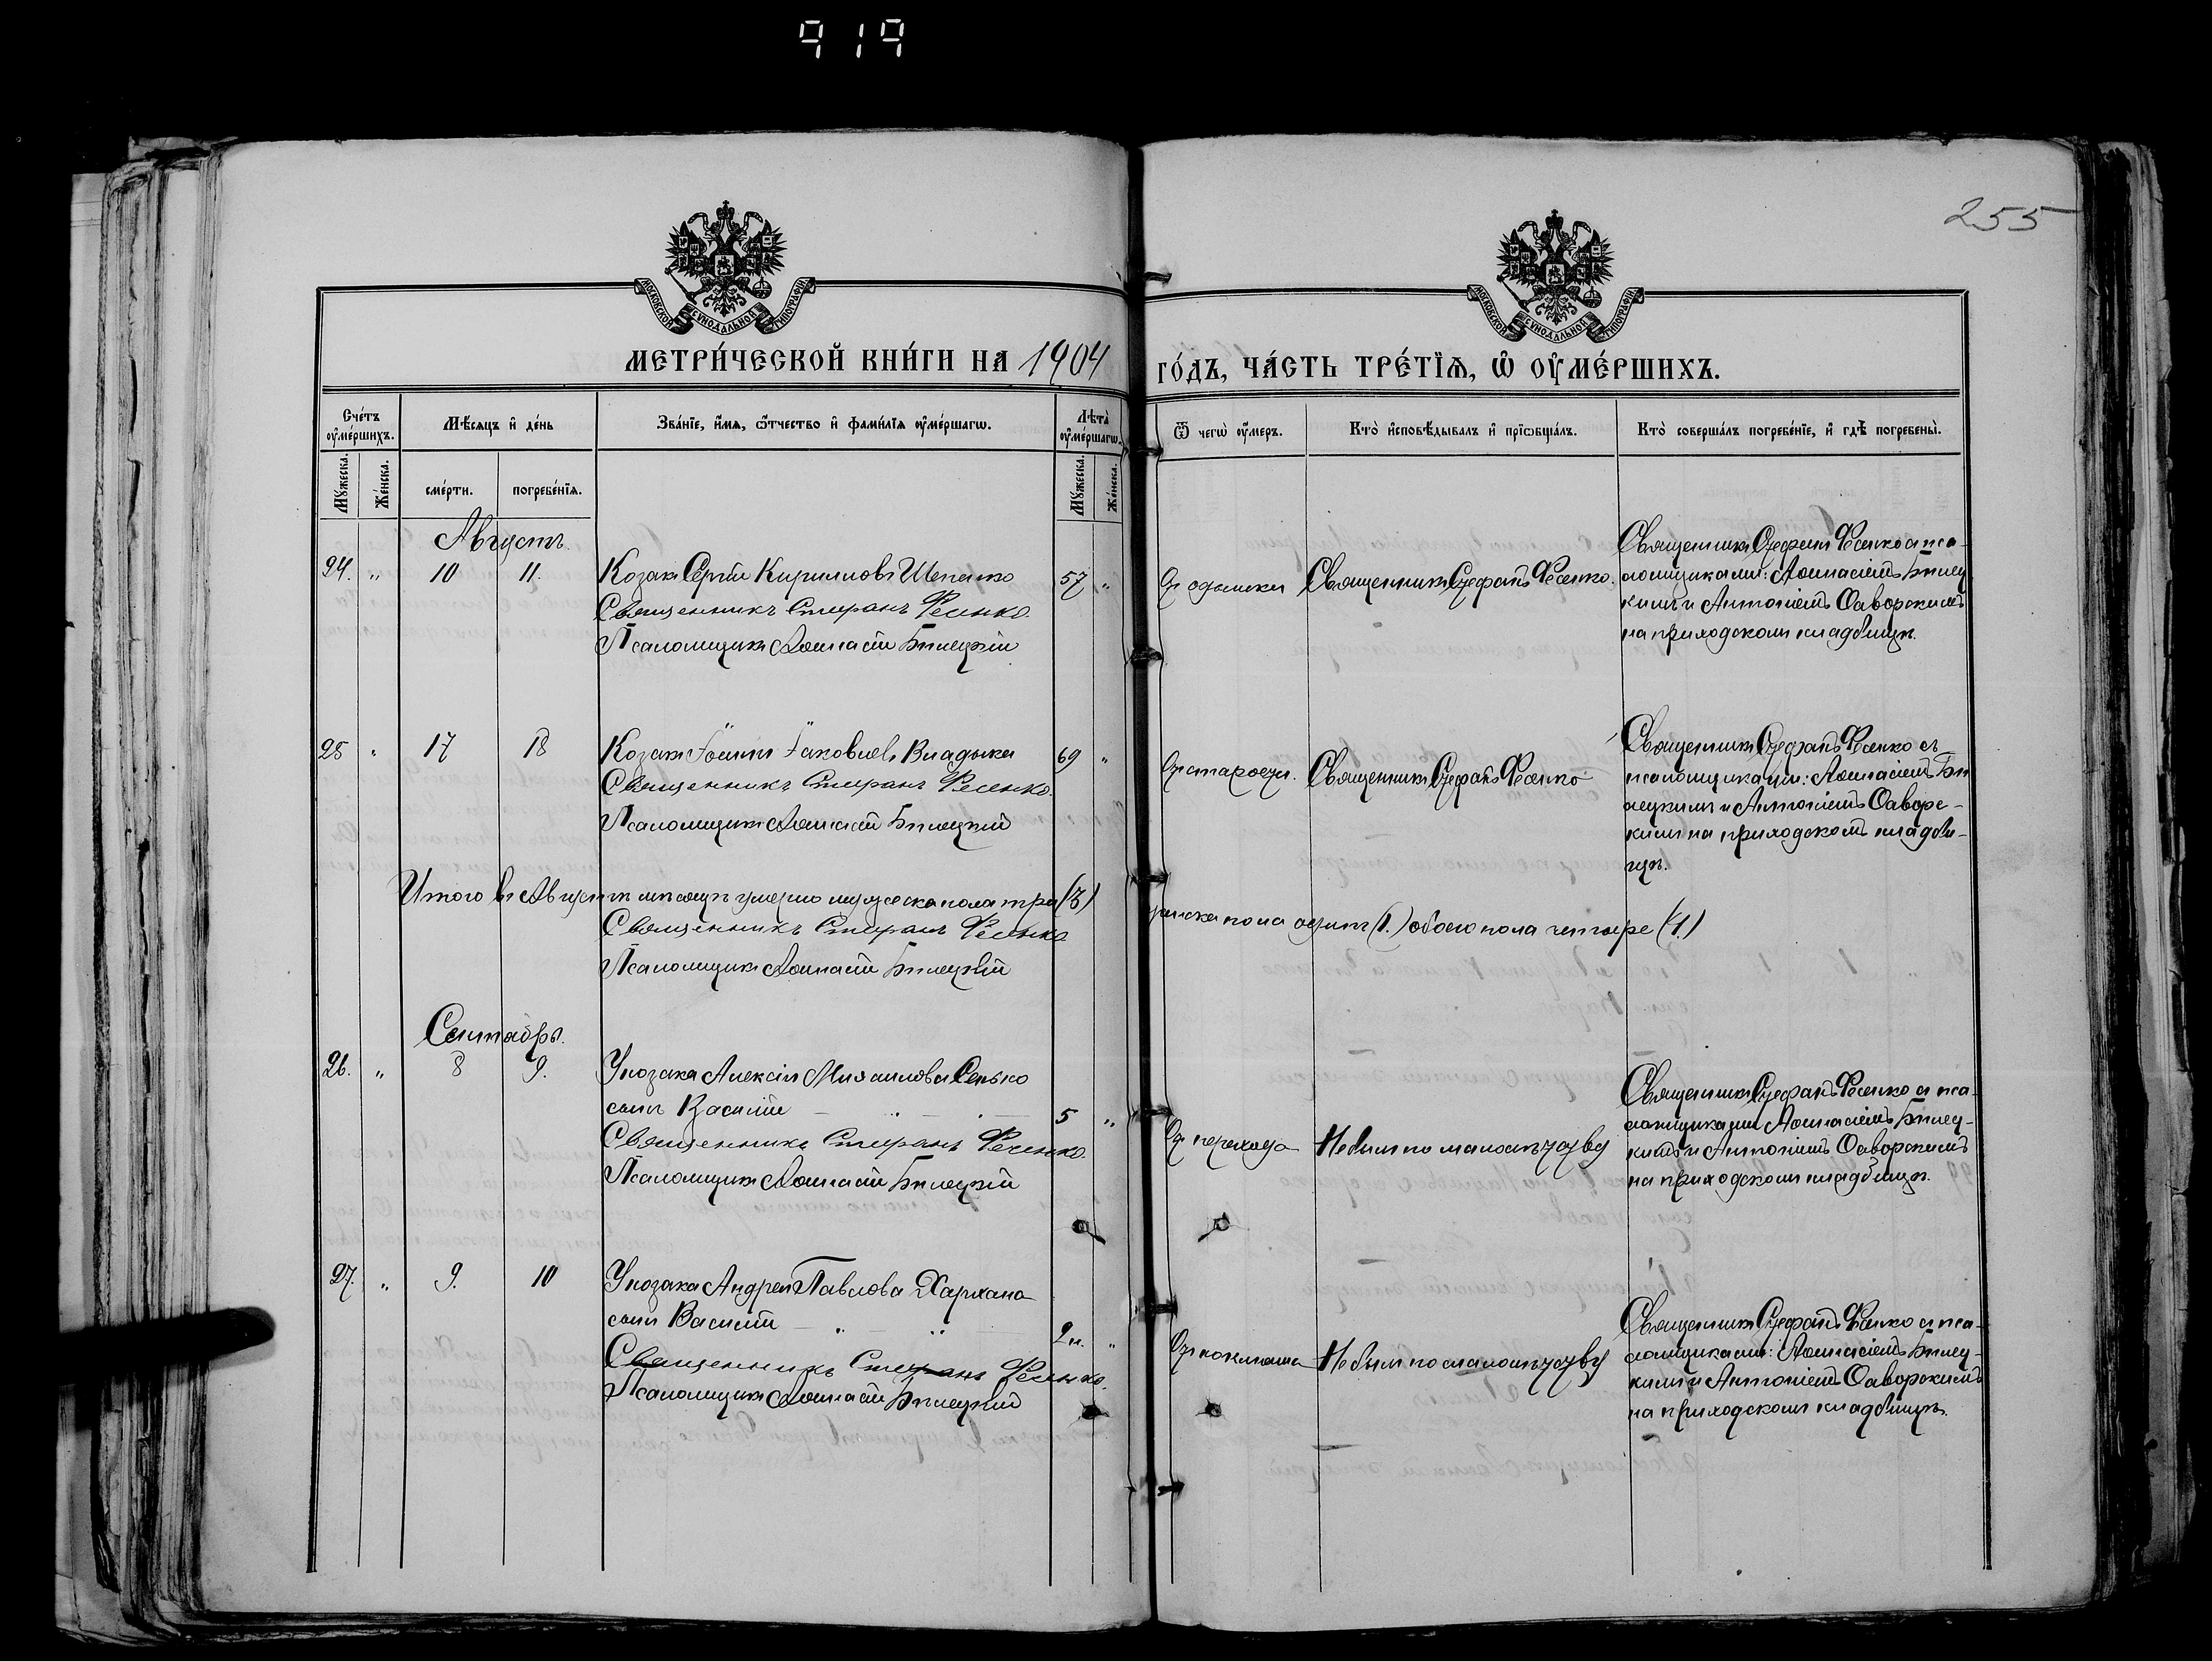 919
255
МОСКОВСКОЙ СѴНОДАЛЬНОЙ ТИПОГРАФІИ
МОСКОВСКОЙ СѴНОДАЛЬНОЙ ТИПОГРАФІИ
МЕТРИ́ЧЕСКОЙ КНИ́ГИ НА 1904 ГО́ДЪ, ЧА́СТЬ ТРЕ́ТЇѦ, Ѡ ОУМЕ́РШИХЪ.
Сче́тъ оуме́ршихъ.
Мѣ́сяцъ и де́нь
Зва́нїе, и́мя, о́тчество и фами́лїя оуме́ршагѡ.
Лѣта̀ оуме́ршагѡ.
Ѿ чегѡ̀ оу́меръ.
Кто̀ исповѣ́дывалъ и прїѡбща́лъ.
Кто̀ соверша́лъ погребе́нїе, и гдѣ̀ погребены̀.
Му́жеска.
Же́нска.
сме́рти.
погребе́нїя.
Му́жеска.
Же́нска.
Августъ.
24. " 10 11. Козакъ Сергій Кирилловъ Шепенко 57 "
Священникъ Стефанъ Фесенко.
Псаломщикъ Аѳанасій Билецкій
Отъ одышки
Священникъ Стефанъ Фесенко.
Священникъ Стефанъ Фесенко съ пса-
ломщиками: Аѳанасіемъ Билец
кимъ и Антоніемъ Саворскимъ
на приходскомъ кладбищѣ.
25 " 17 18 Козакъ Іоаннъ Іаковлевъ Владыка 69 "
Священникъ Стефанъ Фесенко.
Псаломщикъ Аѳанасій Билецкій
Отъ старости.
Священникъ Стефанъ Фесенко
Священникъ Стефанъ Фесенко съ
псаломщиками: Аѳанасіемъ Би
лецкимъ и Антоніемъ Саворс-
кимъ на приходскомъ кладби-
щѣ.
Итого въ Августѣ мѣсяцѣ умерло мужеска пола три (3)
женска пола одинъ (1.) обоего пола четыре (4.)
Священникъ Стефанъ Фесенко
Псаломщикъ Аѳанасій Билецкій
Сентябрь.
26. " 8 9. У козака Алексія Михаилова Сенько
сынъ Василій 5 "
Священникъ Стефанъ Фесенко.
Псаломщикъ Аѳанасій Билецкій
Отъ перехода
Не былъ по малолѣтству
Священникъ Стефанъ Фесенко съ пса-
ломщиками Аѳанасіемъ Билец-
кимъ и Антоніемъ Саворскимъ
на приходскомъ кладбищѣ.
27. " 9. 10 У козака Андрея Павлова
сынъ Василій 2 н. "
Священникъ Стефанъ Фесенко.
Псаломщикъ Аѳанасій Билецкій
Отъ коклюша
Не былъ по малолѣтству
Священникъ Стефанъ Фесенко съ пса-
ломщиками: Аѳанасіемъ Билец-
кимъ и Антоніемъ Саворскимъ
на приходскомъ кладбищѣ.